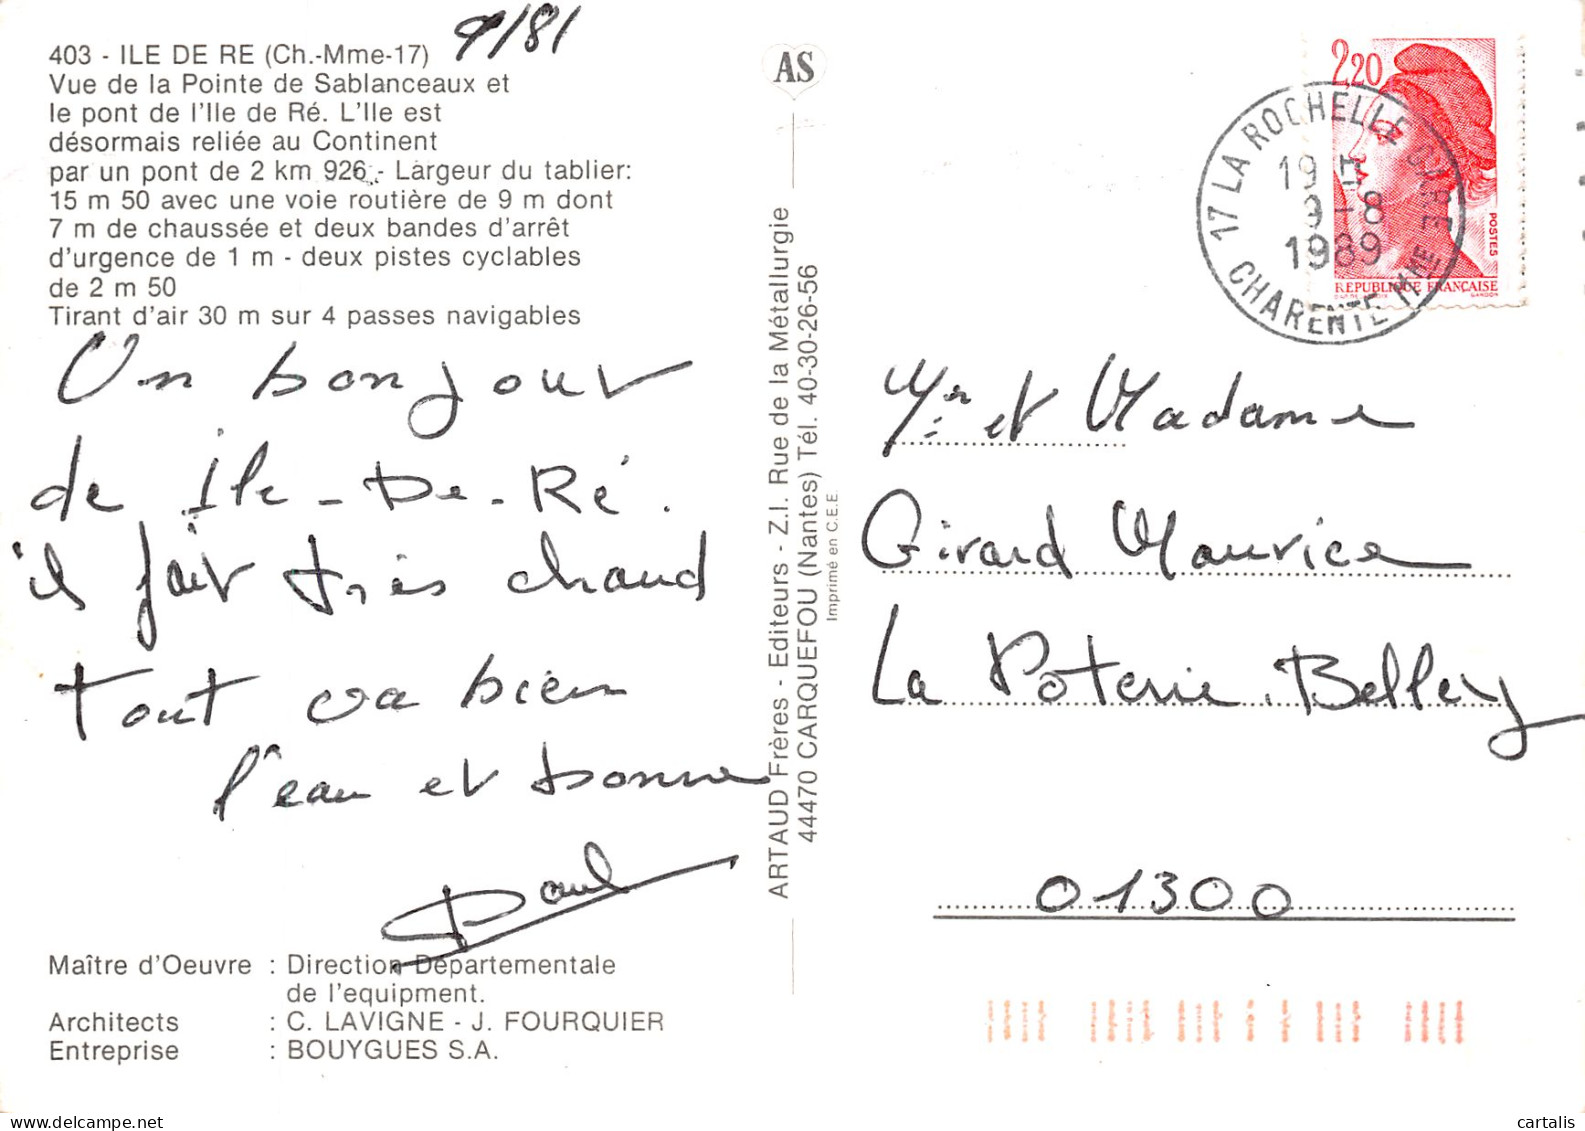 403 - ILE DE RE (Ch.-Mme-17)
Vue de la Pointe de Sablanceaux et
le pont de l'Ile de Ré. L'Ile est
désormais reliée au Continent
par un pont de 2 km 926 - Largeur du tablier:
15 m 50 avec une voie routière de 9 m dont
7 m de chaussée et deux bandes d'arrêt
d'urgence de 1 m - deux pistes cyclables
de 2 m 50
Tirant d'air 30 m sur 4 passes navigables
Un bonjour
de Ile-De-Ré.
il fait très chaud
Tout va bien
l'eau et bonne
Paul
Maître d'Oeuvre : Direction Departementale
de l'equipment.
Architects : C. LAVIGNE - J. FOURQUIER
Entreprise : BOUYGUES S.A.
AS
ARTAUD Frères - Editeurs - Z.I. Rue de la Métallurgie
44470 CARQUEFOU (Nantes) Tél. 40-30-26-56
Imprimé en C.E.E.
2,20
POSTES
REPUBLIQUE FRANÇAISE
GANDON
17 LA ROCHELLE GARE
19 H
9-8
1989
CHARENTE MME
Mr et Madame
Girard Maurice
La Poterie. Belley
01300
cartalis